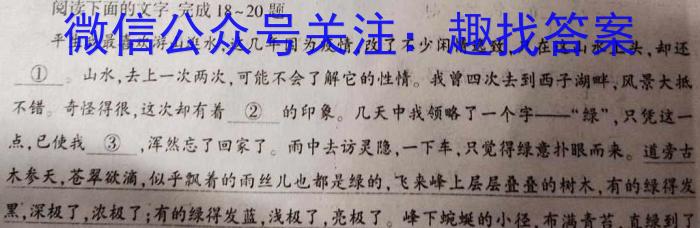 阅读下面的文字,完成18~20题。
微信公众号关注：趣找答案
平
①。山水,去上一次两次,可能不会了解它的性情。我曾四次去到西子湖畔,风景大抵
不错。奇怪得很,这次却有着 ② 的印象。几天中我领略了一个字——“绿”,只凭这一
点,已使我 ③ ,浑然忘了回家了。雨中去访灵隐,一下车,只觉得绿意扑眼而来。道旁古
木参天,苍翠欲滴,似乎飘着的雨丝儿也都是绿的,飞来峰上层层叠叠的树木,有的绿得发
黑,深极了,浓极了;有的绿得发蓝,浅极了,亮极了。峰下蜿蜒的小径,布满青苔,直绿到了